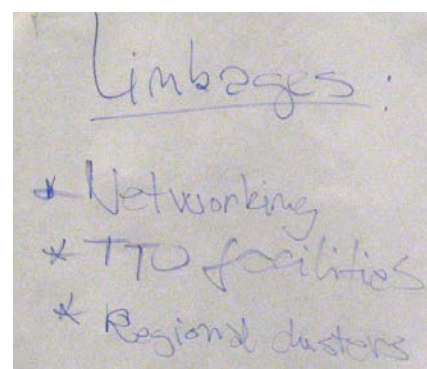 Linkages:
* Networking
* TTO facilities
* Regional clusters